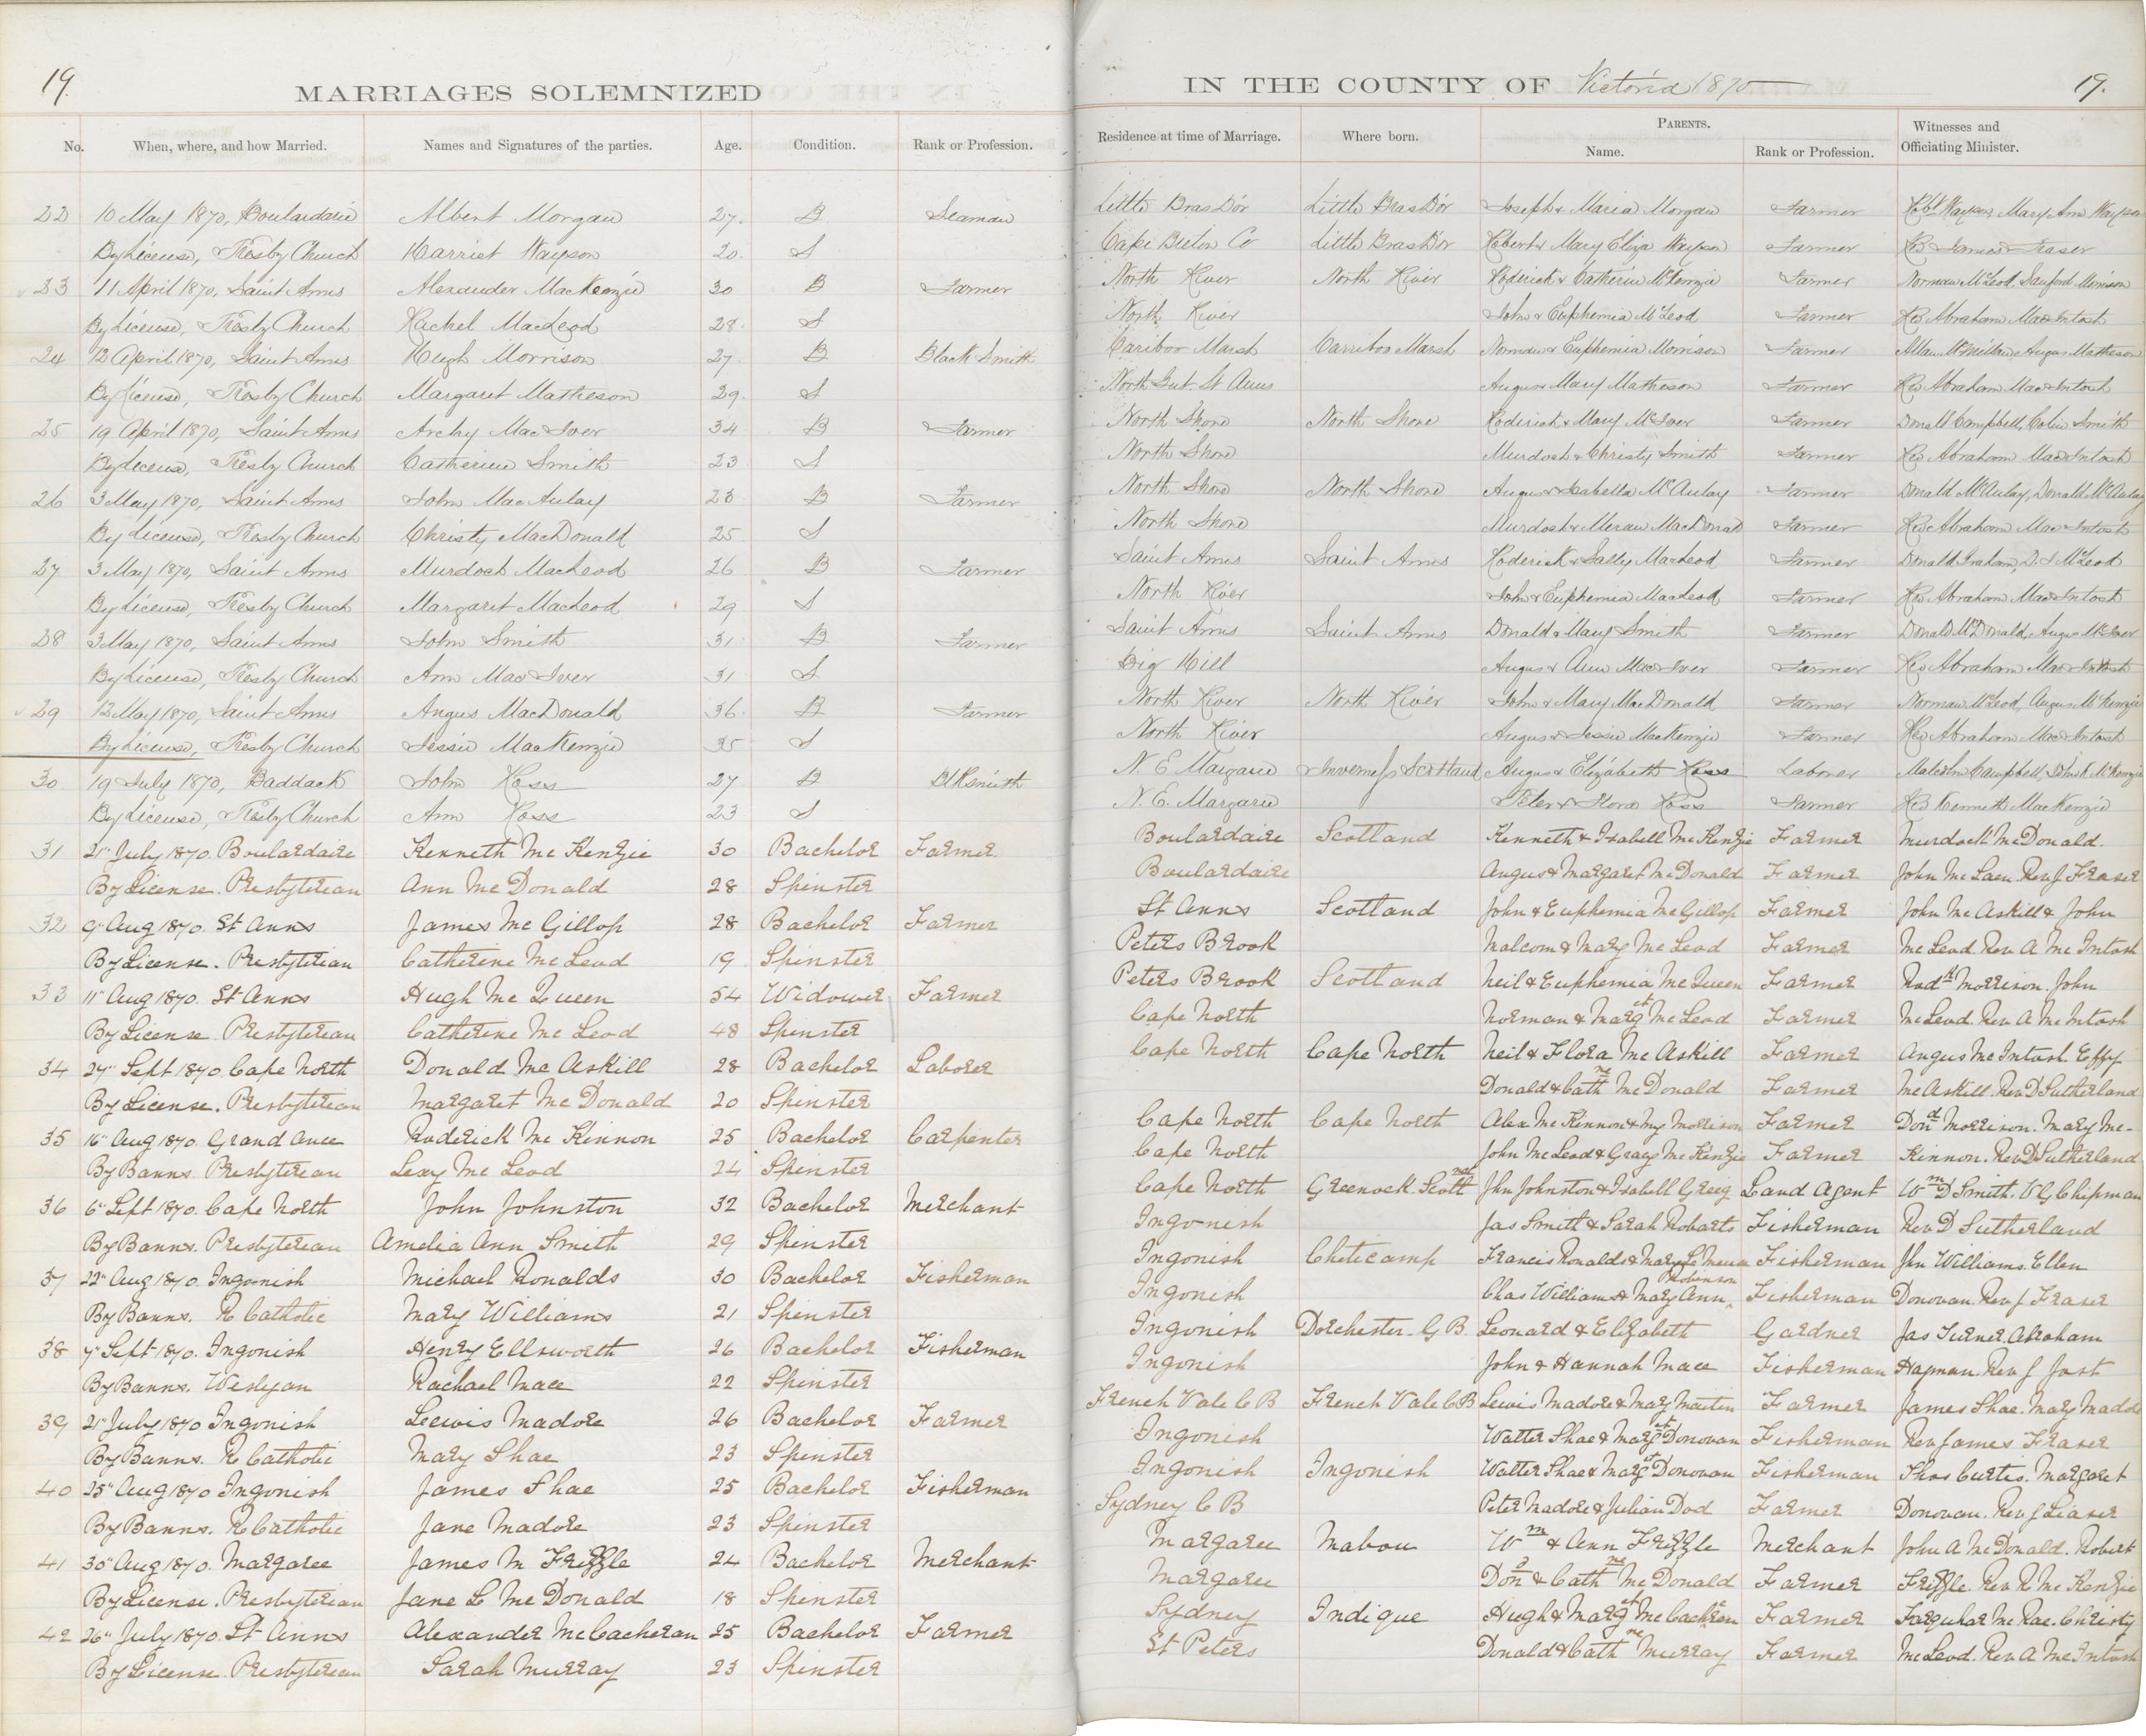 19.
MARRIAGES SOLEMNIZED
IN THE COUNTY OF Victoria 1870
19.
No. When, where, and how Married. Names and Signatures of the parties. Age. Condition. Rank or Profession. Residence at time of Marriage. Where born. PARENTS. Name. Rank or Profession. Witnesses and Officiating Minister.
22 10 May 1870, Boulardarie Albert Morgan 27. B Seaman Little Bras D'or Little Bras D'or Joseph & Maria Morgan Farmer Robt Wayson, Mary Ann Wayson
By License, Presby Church Harriet Wayson 20. S Cape Breton Co Little Bras D'or Robert & Mary Eliza Wayson Farmer Rev James Fraser
23 11 April 1870, Saint Anns Alexander MacKenzie 30 B Farmer North River North River Roderick & Catherine McKenzie Farmer Norman McLeod, Sanford Morrison
By License, Presby Church Rachel MacLeod 28. S North River John & Euphemia McLeod Farmer Rev Abraham MacIntosh
24 12 April 1870, Saint Anns Hugh Morrison 27. B Black Smith Caribor Marsh Carribor Marsh Norman & Euphemia Morrison Farmer Allan McMillan, Angus Matheson
By License, Presby Church Margaret Matheson 29. S North Gut St Anns Angus & Mary Matheson Farmer Rev Abraham MacIntosh
25 19 April 1870, Saint Anns Archy MacIver 34 B Farmer North Shore North Shore Roderick & Mary McIver Farmer Donald Campbell, Colin Smith
By License, Presby Church Catherine Smith 23 S North Shore Murdoch & Christy Smith Farmer Rev Abraham MacIntosh
26 3 May 1870, Saint Anns John MacAulay 28 B Farmer North Shore North Shore Angus & Isabella McAulay Farmer Donald McAulay, Donald McAulay
By License, Presby Church Christy MacDonald 25 S North Shore Murdoch & Meran MacDonald Farmer Rev Abraham MacIntosh
27 3 May 1870, Saint Anns Murdoch MacLeod 26 B Farmer Saint Anns Saint Anns Roderick & Sally MacLeod Farmer Donald Graham, D. J McLeod
By License, Presby Church Margaret MacLeod 29 S North River John & Euphemia MacLeod Farmer Rev Abraham MacIntosh
28 3 May 1870, Saint Anns John Smith 31. B Farmer Saint Anns Saint Anns Donald & Mary Smith Farmer Donald McDonald, Angus McIver
By License, Presby Church Ann MacIver 31 S Big Hill Angus & Ann MacIver Farmer Rev Abraham MacIntosh
29 12 May 1870, Saint Anns Angus MacDonald 36. B Farmer North River North River John & Mary MacDonald Farmer Norman McLeod, Angus McKenzie
By License, Presby Church Jessie MacKenzie 35 S North River Angus & Jessie MacKenzie Farmer Rev Abraham MacIntosh
30 19 July 1870, Baddack John Ross 27 B Blksmith N. E Margarie Inverness Scotland Angus & Elizabeth Ross Laborer Malcolm Campbell, John K. McKenzie
By License, Presby Church Ann Ross 23 S N. E. Margarie Peter & Flora Ross Farmer Rev Kenneth MacKenzie
31 21" July 1870. Boulardaire Kenneth McKenzie 30 Bachelor Farmer Boulardaire Scotland Kenneth & Isabell McKenzie Farmer Murdock McDonald.
By License. Presbyterian Ann McDonald 28 Spinster Boulardaire Angus & Margaret McDonald Farmer John McLaen. Rev J Fraser
32 9" Aug 1870. St Anns James McGillop 28 Bachelor Farmer St Anns Scotland John & Euphemia McGillop Farmer John McAskill & John
By License. Presbyterian Catherine McLeod 19 Spinster Peters Brook Malcom & Mary McLeod Farmer McLeod. Rev A McIntosh
33 11" Aug 1870. St Anns Hugh McQueen 54 Widower Farmer Peters Brook Scotland Neil & Euphemia McQueen Farmer Rodk Morrison. John
By License. Presbyterian Catherine McLeod 48 Spinster Cape North Norman & Marget McLeod Farmer McLeod. Rev A McIntosh
34 27" Sept 1870. Cape North Donald McAskill 28 Bachelor Laborer Cape North Cape North Neil & Flora McAskill Farmer Angus McIntosh. Effy
By License. Presbyterian Margaret McDonald 20 Spinster Donald & Cathne McDonald Farmer McAskill. Rev D Sutherland
35 16" Aug 1870. Grand Ance Roderick McKinnon 25 Bachelor Carpenter Cape North Cape North Alex McKinnon & My Morrison Farmer Dond Morrison. Mary Mc-
By Banns. Presbyterian Lexy McLeod 24 Spinster Cape North John McLeod & Gracy McKenzie Farmer Kinnon. Rev D Sutherland
36 6" Sept 1870. Cape North John Johnston 32 Bachelor Merchant Cape North Greenock. Scotland Jhn Johnston & Isabell Greig Land Agent Wm D Smith. W G Chipman
By Banns. Presbyterian Amelia Ann Smith 29 Spinster Ingonish Jas Smith & Sarah Robarts Fisherman Rev D Sutherland
37 22" Aug 1870. Ingonish Michael Ronalds 30 Bachelor Fisherman Ingonish Cheticamp Francis Ronalds & Mary Fisherman Jhn Williams. Ellen
By Banns. R Catholic Mary Williams 21 Spinster Ingonish Chas Williams & Mary Ann Robinson Fisherman Donovan. Rev J Fraser
38 7" Sept 1870. Ingonish Henry Ellsworth 26 Bachelor Fisherman Ingonish Dorchester. G B. Leonard & Elizabeth Gardner Jas Turner. Abraham
By Banns. Wesleyan Rachael Mace 22 Spinster Ingonish John & Hannah Mace Fisherman Hapman. Rev J Jost
39 21" July 1870 Ingonish Leewis Madore 26 Bachelor Farmer French Vale C B French Vale C B Lewis Madore & Mary Martin Farmer James Shae. Mary Madore
By Banns. R Catholic Mary Shae 23 Spinster Ingonish Walter Shae & Marget Donovan Fisherman Rev James Fraser
40 25" Aug 1870 Ingonish James Shae 25 Bachelor Fisherman Ingonish Ingonish Walter Shae & Marget Donovan Fisherman Thos Curtis. Margaret
By Banns. R Catholic Jane Madore 23 Spinster Sydney C B Peter Madore & Julian Dod Farmer Donovan. Rev J
41 30" Aug 1870. Margaree James M Frizzle 24 Bachelor Merchant Margaree Mabou Wm & Ann Frizzle Merchant John A McDonald. Robert
By License. Presbyterian Jane L McDonald 18 Spinster Margaree Don & Cathne McDonald Farmer Frizzle. Rev R McKenzie
42 26" July 1870. St Anns Alexander McCacheran 25 Bachelor Farmer Sydney Indique Hugh & Marget McCachren Farmer Farquhar McRae. Christy
By License. Presbyterian Sarah Murray 23 Spinster St Peters Donald & Cathne Murray Farmer McLeod. Rev A McIntosh